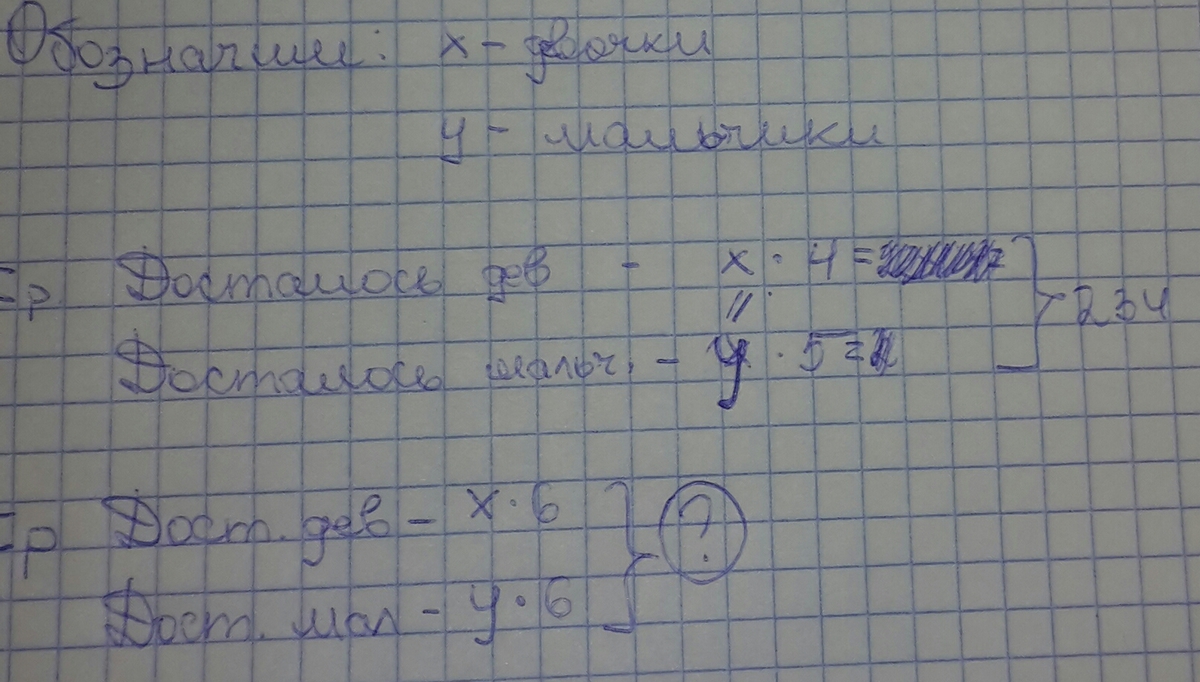 Обозначим: х - двочки
у - мальчики
р Досталось дев - х · 4 =
"
Досталось мальч. - у · 5 =
234
р Дост. дев - х · 6
?
Дост. мал - у · 6